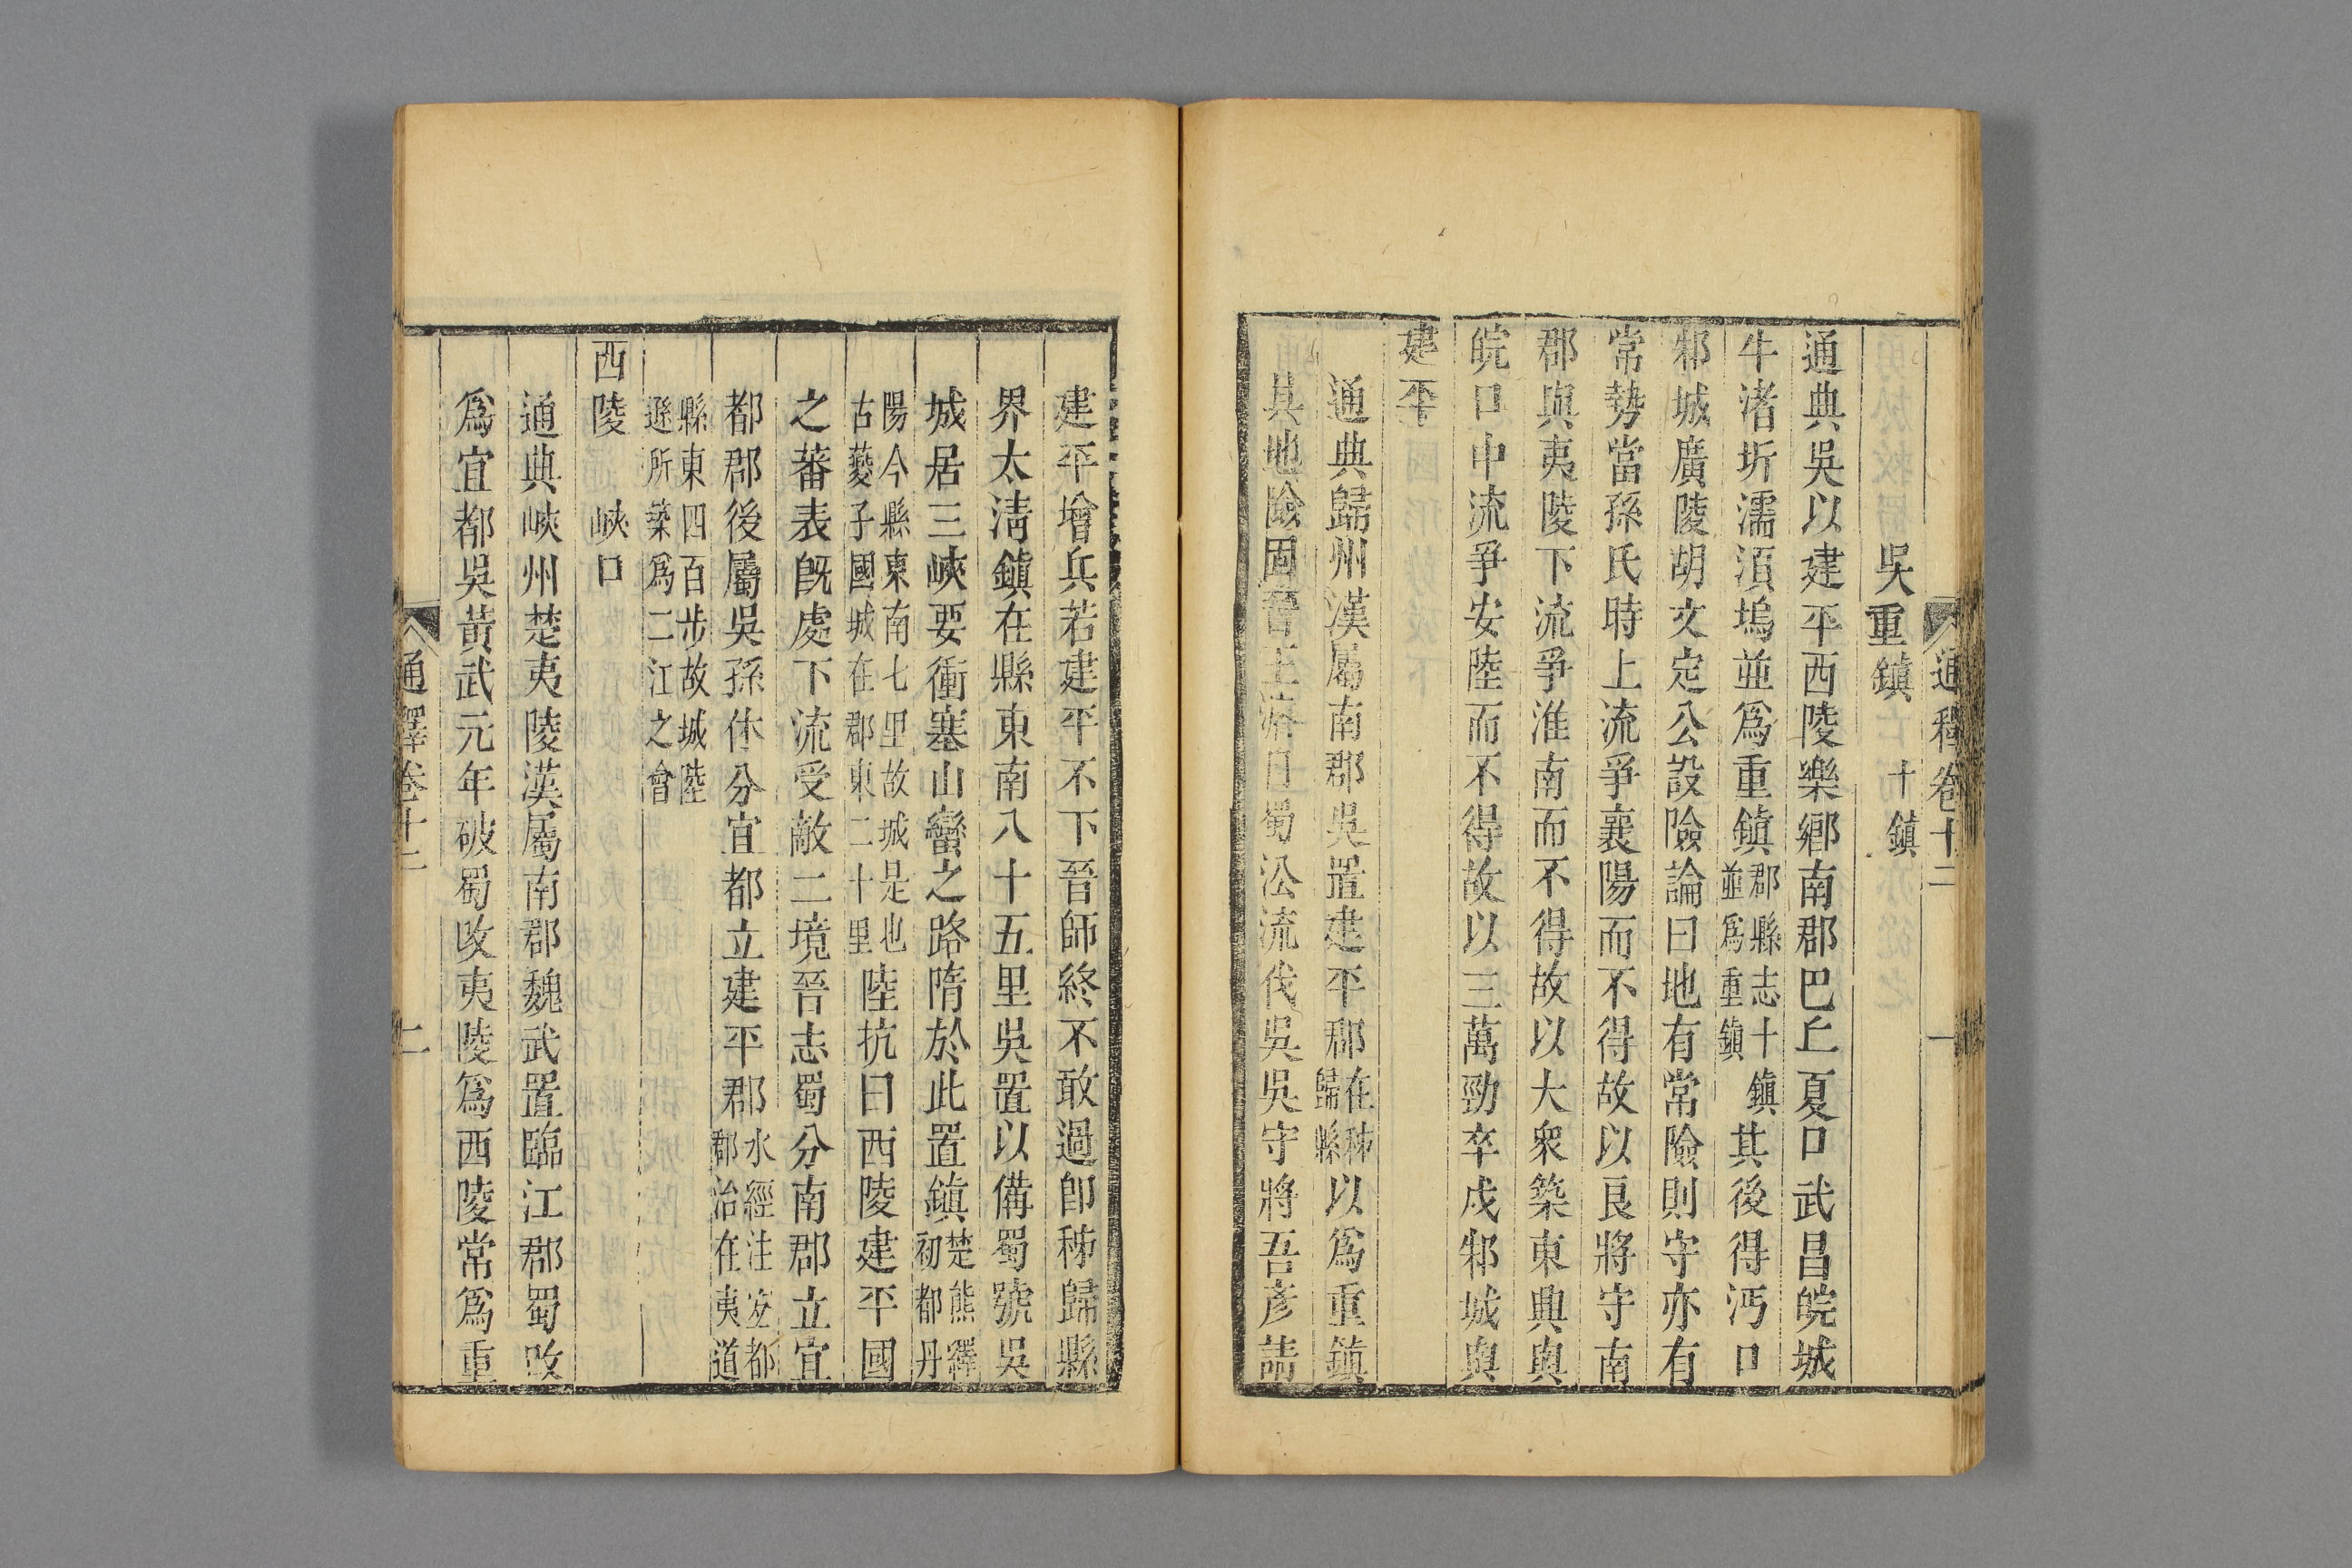 通釋卷十二
一
吳重鎮 十鎮
通典吳以建平西陵樂鄉南郡巴丘夏口武昌皖城
牛渚圻濡湏塢並爲重鎮郡縣志十鎮並爲重鎮其後得沔口
邾城廣陵胡文定公設險論曰地有常險則守亦有
常勢當孫氏時上流爭襄陽而不得故以良將守南
郡與夷陵下流爭淮南而不得故以大衆築東興與
皖口中流爭安陸而不得故以三萬勁卒戍邾城與
建平
通典歸州漢屬南郡吳置建平郡在秭歸縣以爲重鎮
其地險固晉王濬自蜀㳂流伐吳吳守將吾彦請
建平增兵若建平不下晉師終不敢過卽秭歸縣
界太淸鎮在縣東南八十五里吳置以備蜀號吳
城居三峽要衝塞山蠻之路隋於此置鎮楚熊繹初都丹
陽今縣東南七里故城是也古夔子國城在郡東二十里陸抗曰西陵建平國
之蕃表旣處下流受敵二境晉志蜀分南郡立宜
都郡後屬吳孫休分宜都立建平郡水經注宜都郡治在夷道
縣東四百步故城陸遜所築爲二江之會
西陵 峽口
通典峽州楚夷陵漢屬南郡魏武置臨江郡蜀改
爲宜都吳黃武元年破蜀改夷陵爲西陵常爲重
通釋卷十二
二